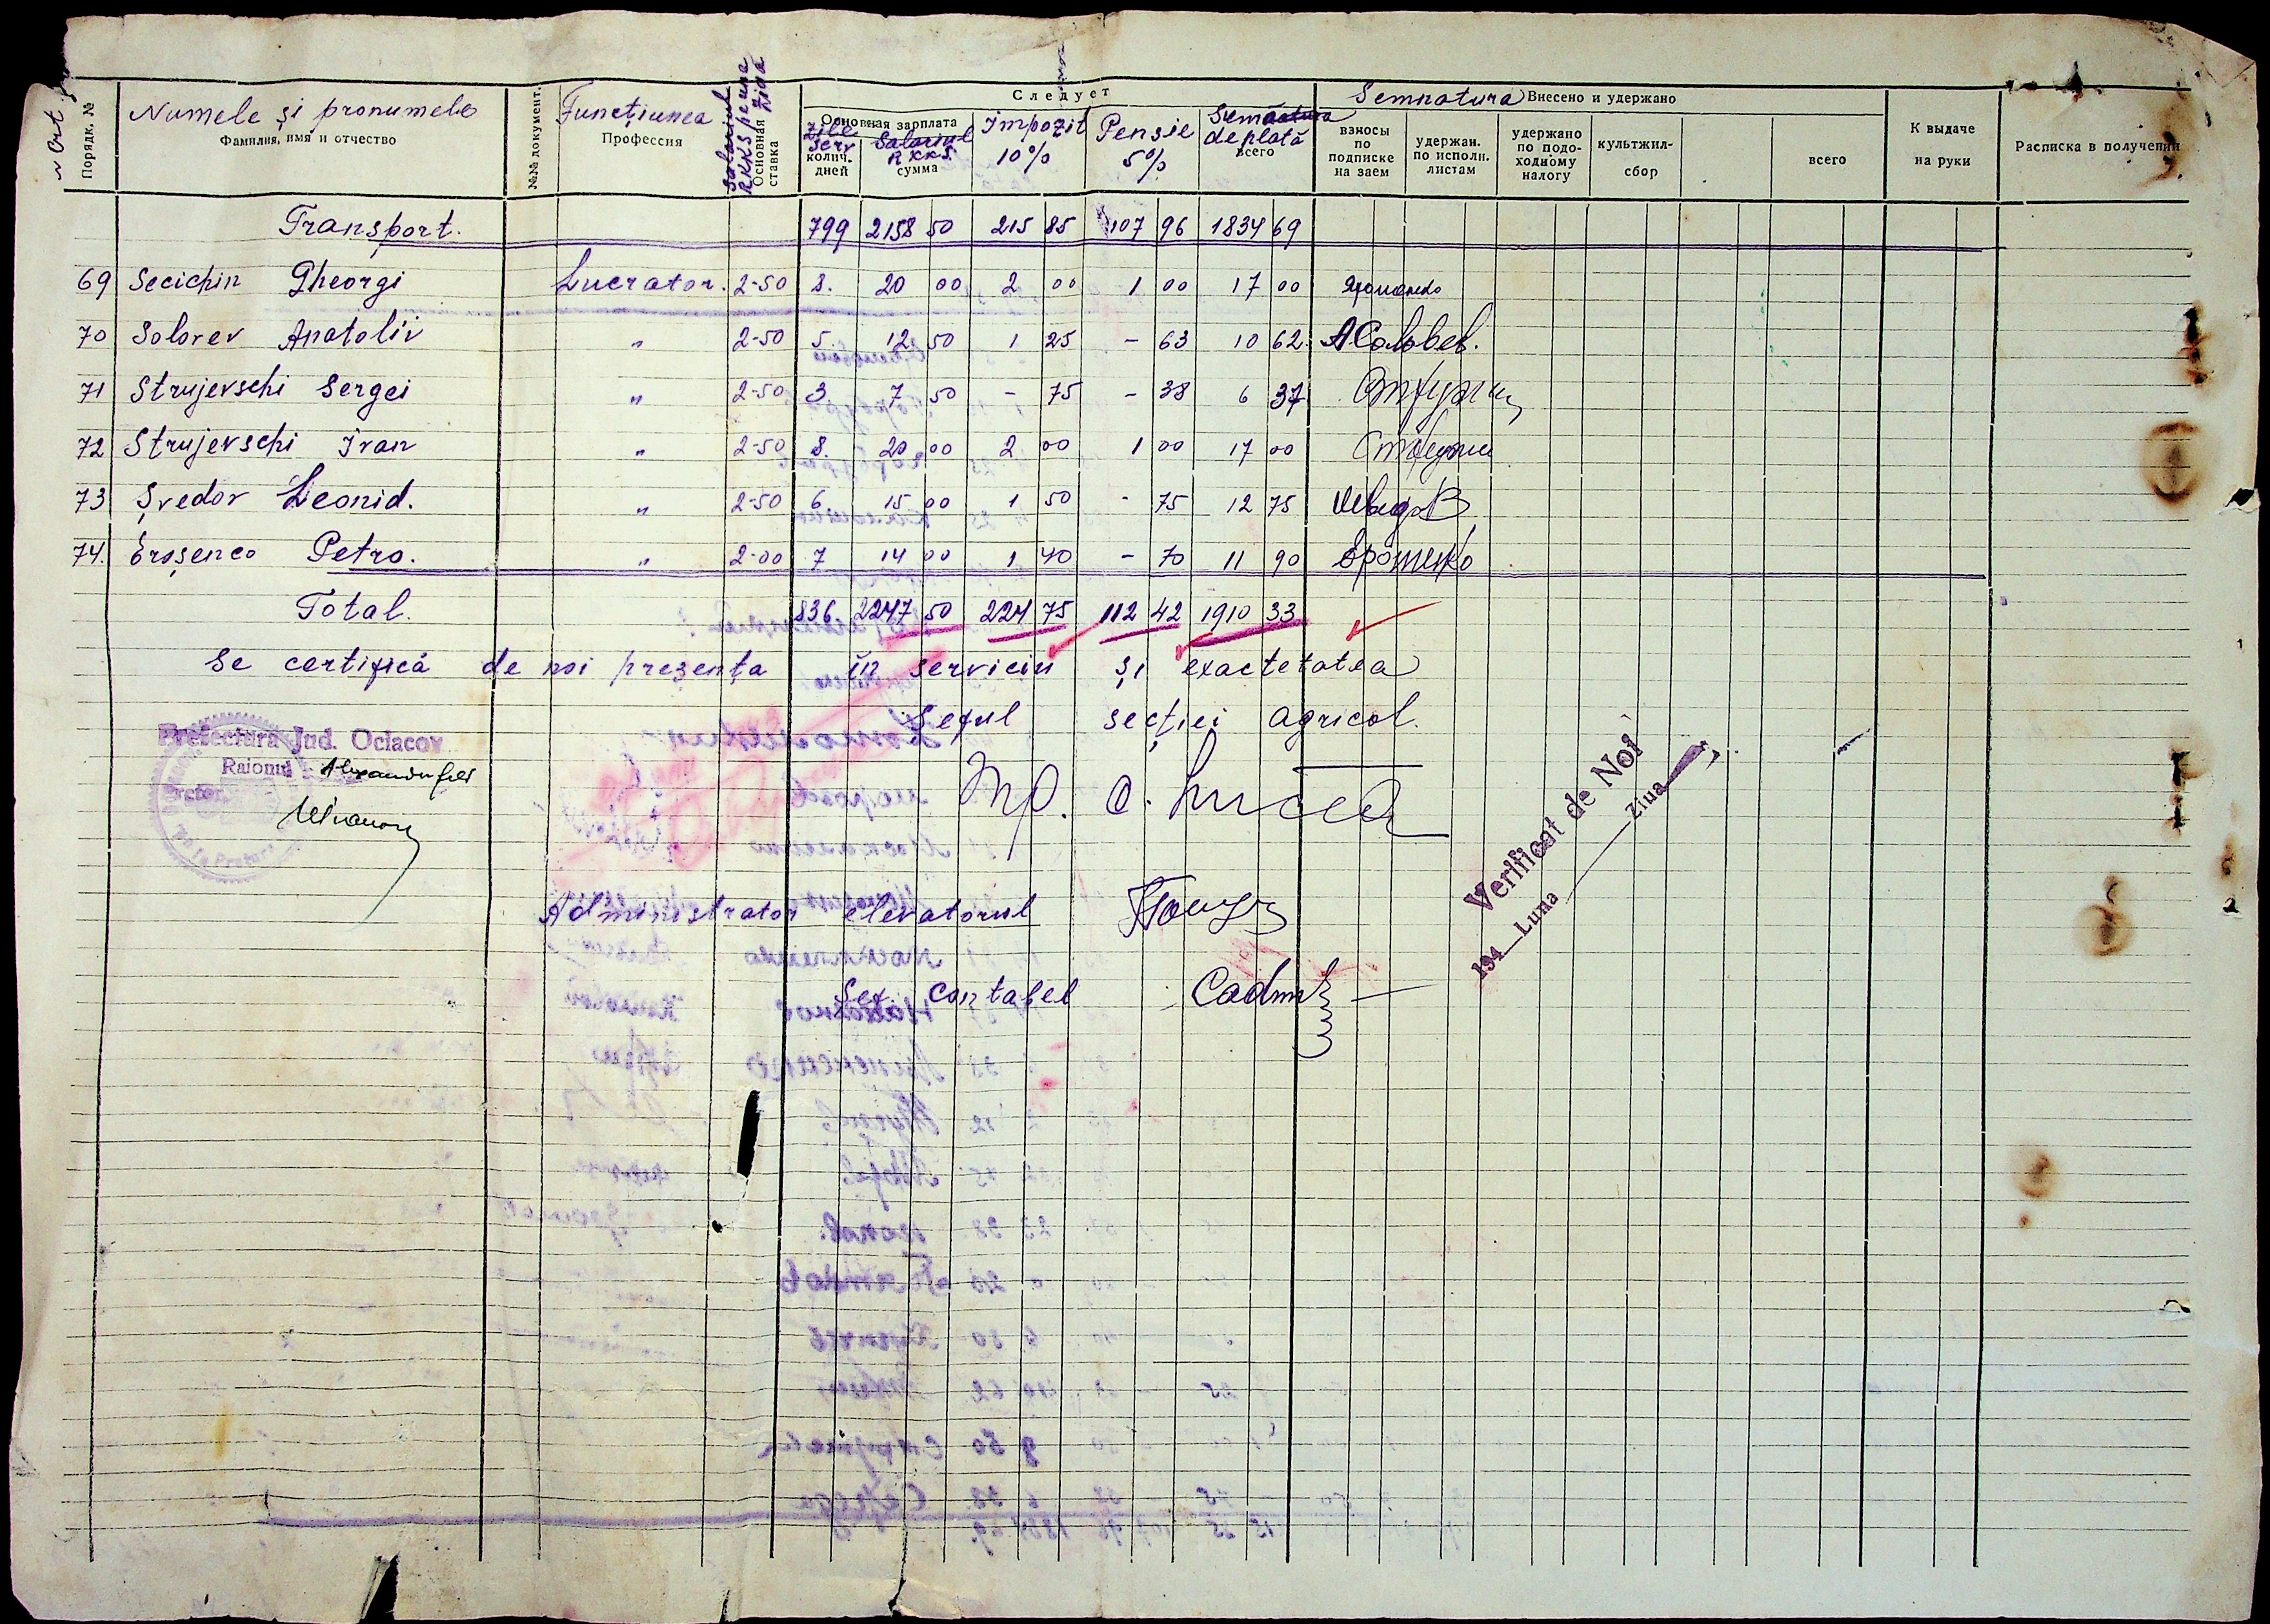 Semnatura Внесено и удержано
Следует
N Crt
Порядк. №
Numele și pronumele
Фамилия, имя и отчество
№№ документ.
Funcțiunea
Профессия
Salariul RKKS pe una Ziua
Основная ставка
Основная зарплата
Zile Serv
колич. дней
Salariul RKKS.
сумма
Impozit 10%
Pensie 5%
Suma de plată
всего
взносы по подписке на заем
удержан. по исполн. листам
удержано по подо-ходному налогу
культжил-сбор
всего
К выдаче на руки
Расписка в получении
Transport. 799 2158 50 215 85 107 96 1834 69
69 Secichin Gheorgi Lucrator. 2-50 8. 20 00 2 00 1 00 17 00
70 Solovev Anatoliv " 2-50 5. 12 50 1 25 - 63 10 62. АСоловьев.
71 Strujevschi Sergei " 2-50 3. 7 50 - 75 - 38 6 37
72 Strujevschi Ivan " 2-50 8. 20 00 2 00 1 00 17 00
73 Șvedov Leonid. " 2-50 6. 15 00 1 50 - 75 12 75 Шведов
74. Eroșenco Petro. " 2-00 7 14 00 1 40 - 70 11 90 Ерошенко
Total. 836 2247 50 224 75 112 42 1910 33
Se certifică de noi prezența în serviciu și exactetatea
Șeful secției agricol.
Prefectura Jud. Ociacov
Raionul Alexanderfeld
Pretor
Verificat de Noi
194 Luna Ziua
Administrator elevatorul
Șef. contabel